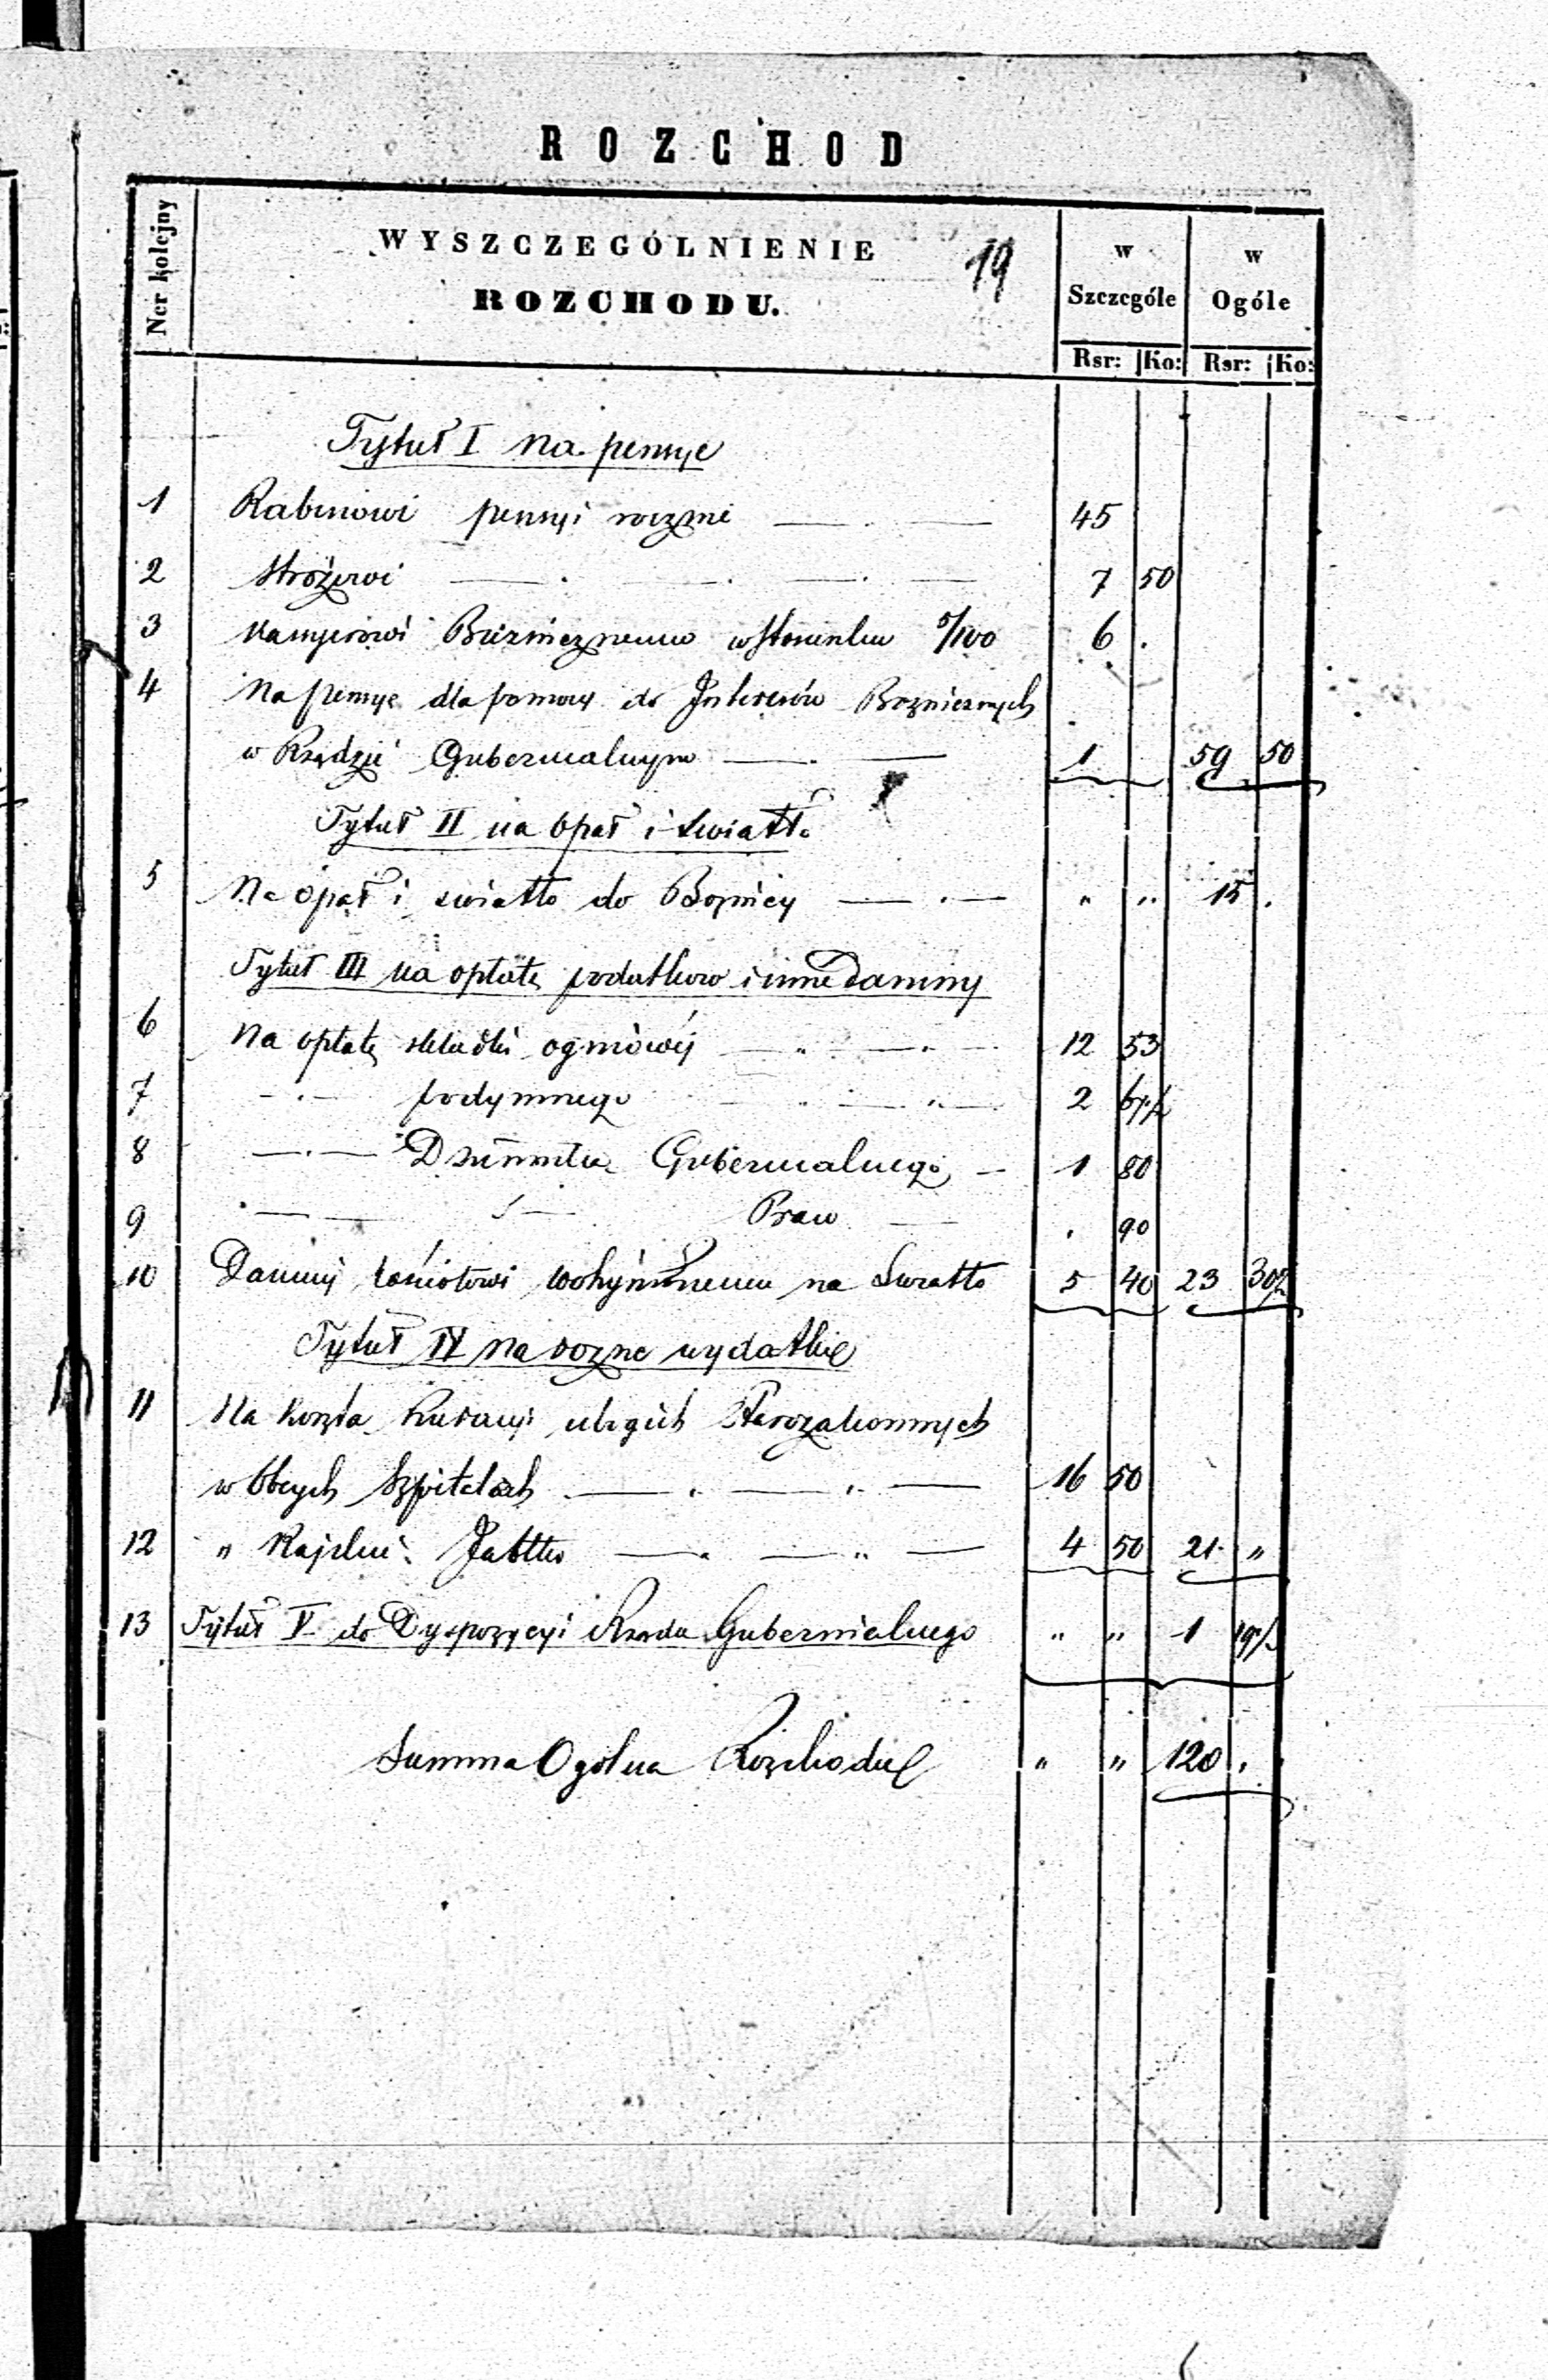 ROZCHOD
Ner kolejny
WYSZCZEGÓLNIENIE
ROZCHODU.
19
w Szczególe
w Ogóle
Rsr: Ko: Rsr: Ko:
Tytuł I na pensye
1 Rabinowi pensyi rocznie 45
2 Stróżowi 7 50
3 Kassyerowi Bożnicznemu w stosunku 5/100 6 .
4 Na pensye dla pomocy do Interesów Bożnicznych
w Rządzie Gubernialnym 1 59 50
Tytuł II na opał i swiatło
5 Na opał i swiatło do Bożnicy " " 15 .
Tytuł III na opłatę podatkow i inne daniny
6 Na opłatę składki ogniowéj 12 53
7 podymnego 2
8 Dziennika Gubernialnego 1 80
9 Praw . 90
10 Daniny kościołowi na Swiatło 5 40 23 30½
Tytuł IV na rozne wydatki
11 Na koszta kuracyi ubogich Starozakonnych
w Obcych Szpitalach 16 50
12 " Rajskie Jabłko 4 50 21 "
13 Tytuł V do Dyspozycyi Rządu Gubernialnego " " 1 19½
Summa Ogólna Rozchodu " " 120 .